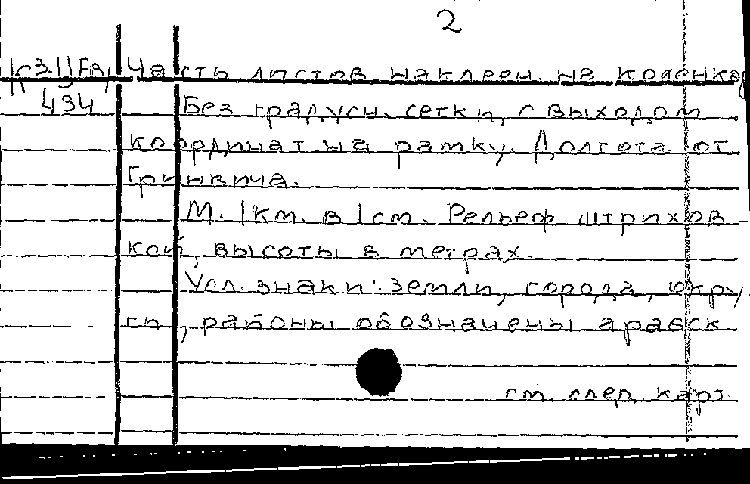 2
Часть листов наклеен. на коленкор
434 Без градусн. сетки, с выходом
координат на рамку. Долгота от
Гринвича.
М. 1км. в 1см. Рельеф штрихов
кой, высоты в метрах.
Усл. знаки: земли, города, окру
ги, районы обозначены арабск.
см. след. карт.